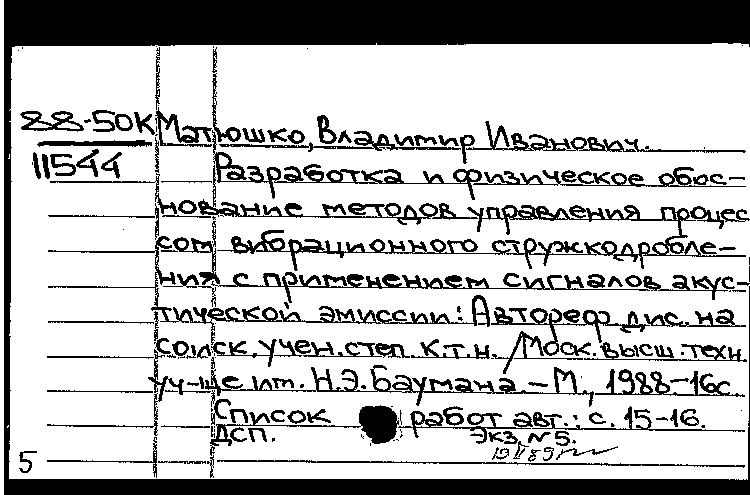 88-50К Матюшко, Владимир Иванович.
11544 Разработка и физическое обос-
нование методов управления процес
сом вибрационного стружкодробле-
ния с применением сигналов акус-
тической эмиссии: Автореф. дис. на
соиск. учен. степ. к.т.н. /Моск. высш. техн.
уч-ще им. Н.Э. Баумана. - М., 1988-16с.
Список работ авт.: с. 15-16.
ДСП. Экз. №5.
5